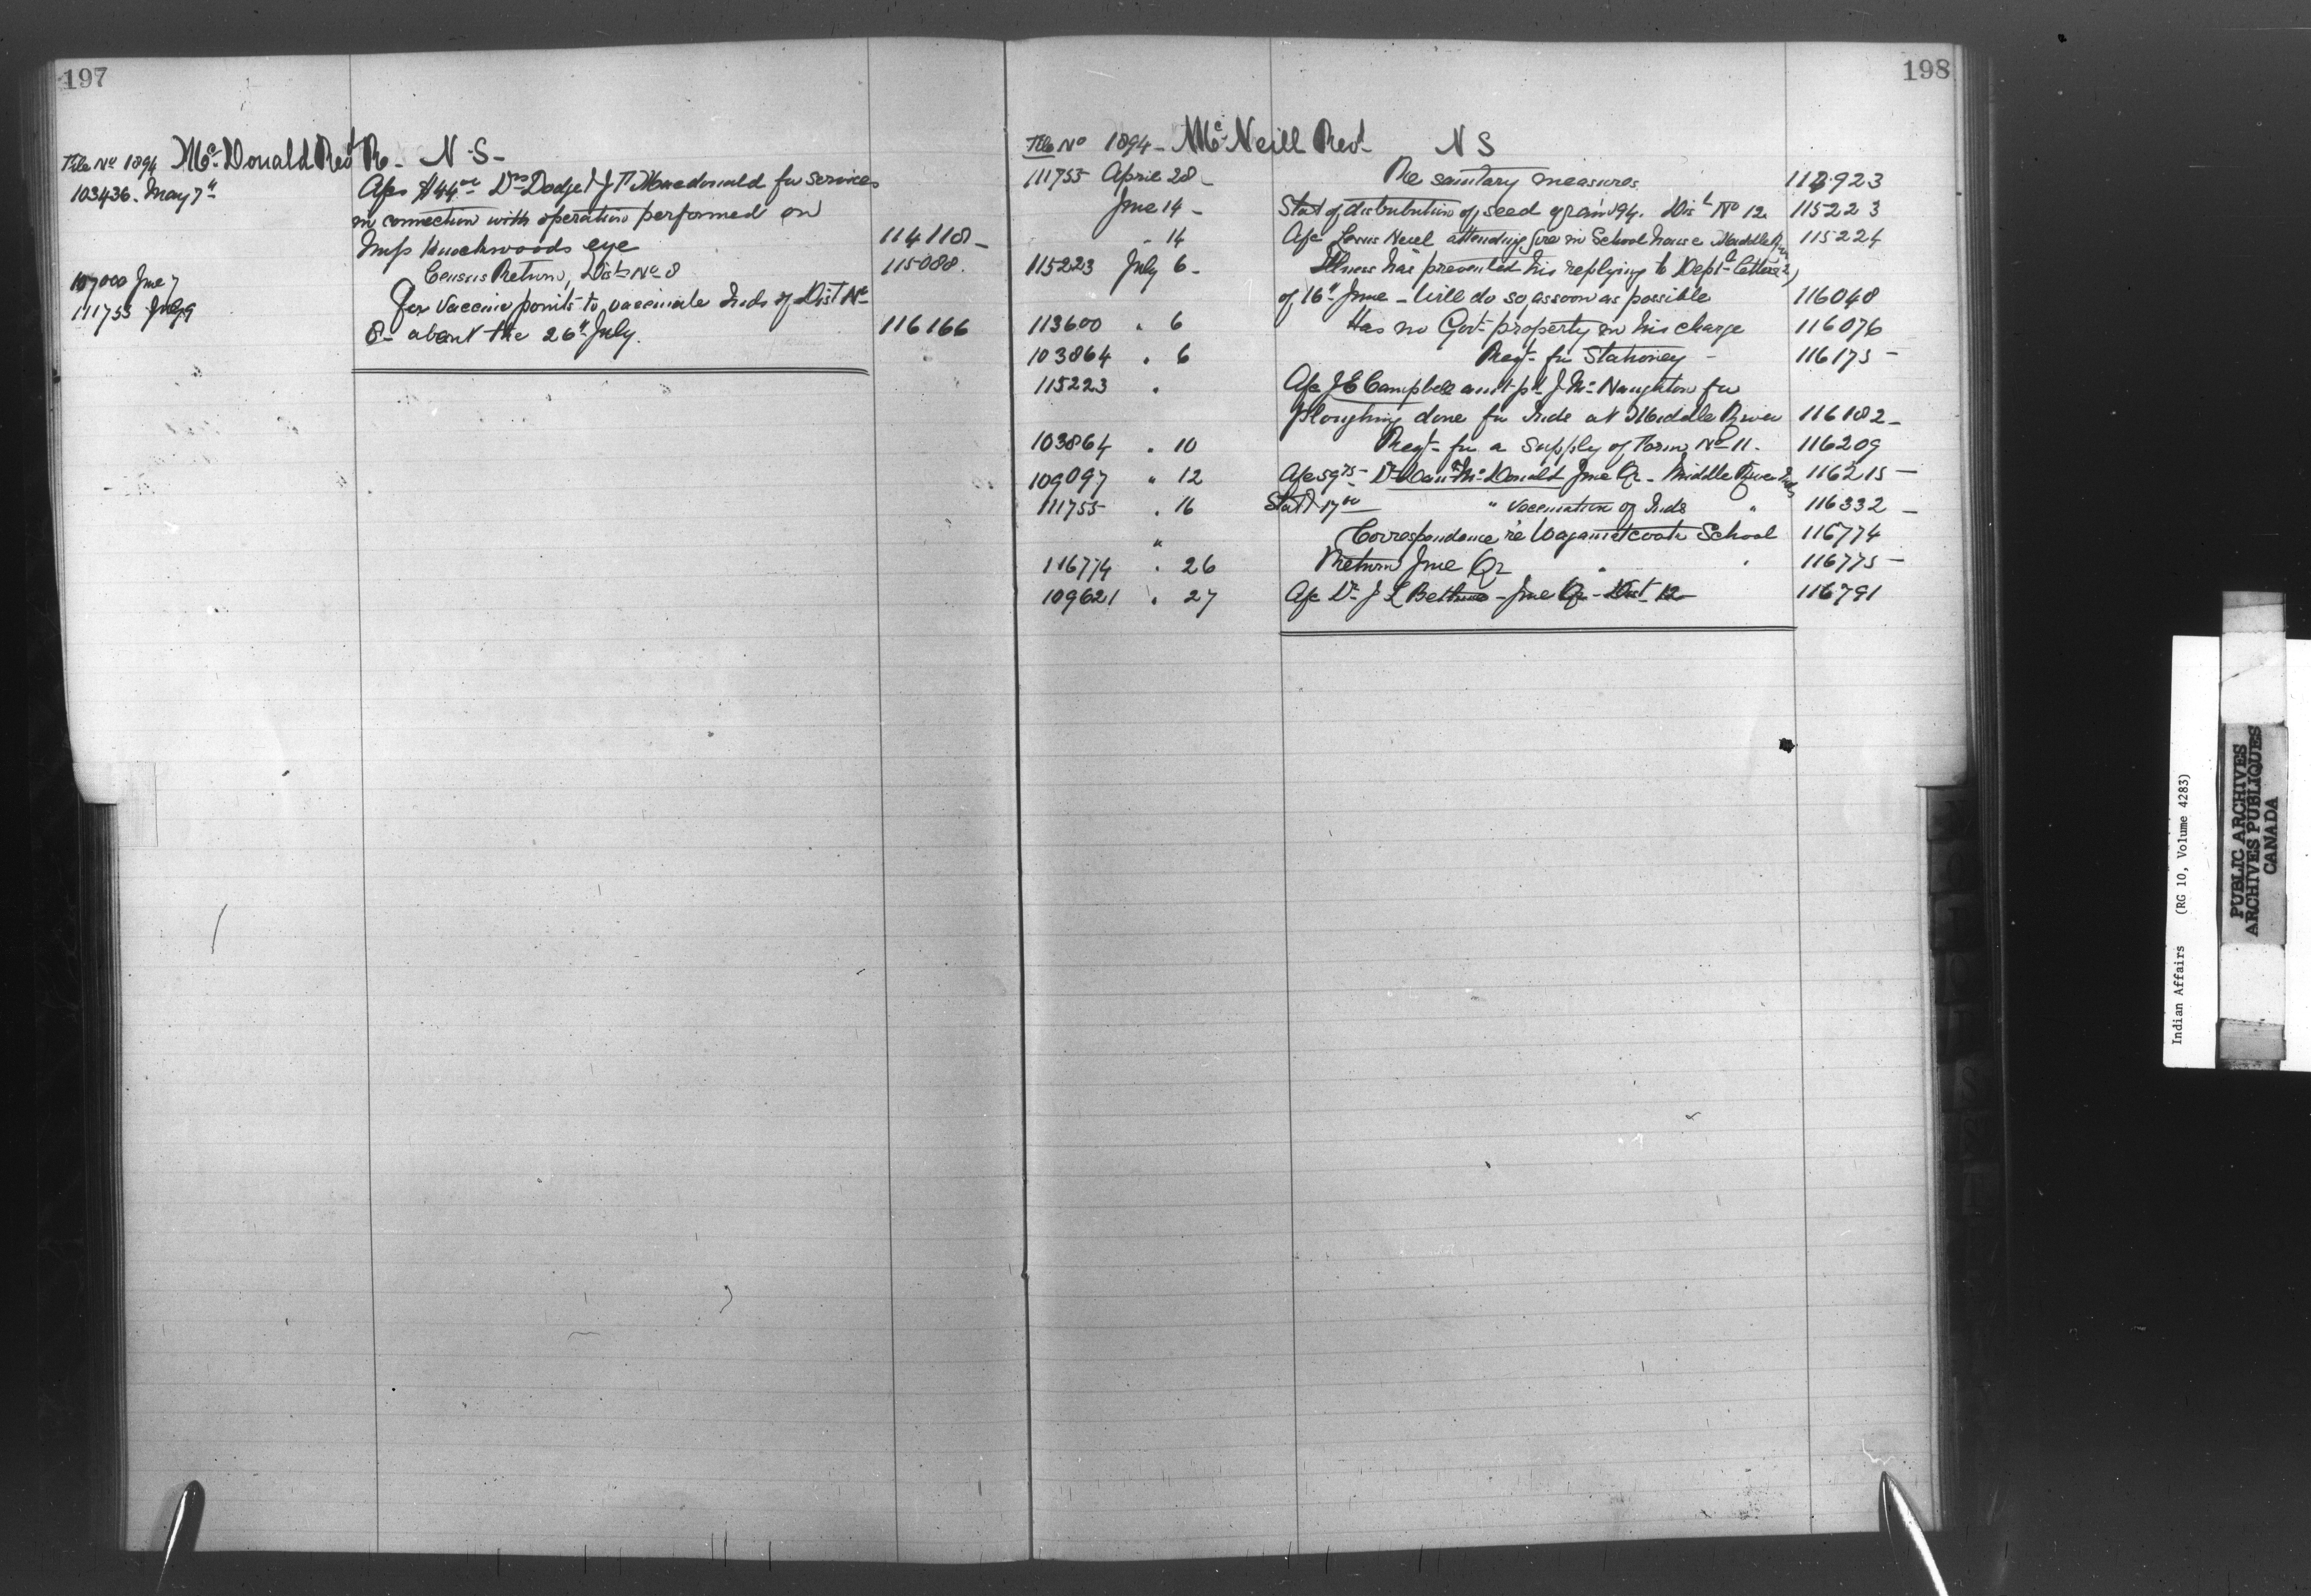 197
File No 1894 McDonald Revd R. N.S.
103436. May 7th Afc $44.00 Drs Dodge & J. Macdonald for services
in connection with operation performed on
eye 114118 -
107000 June 7 Census Return, Dist No 8 115088.
111755 July 9 For Vaccine points to vaccinate Inds of Dist No
8 - about the 26th July. 116166
198
File No 1894 - McNeill Revd N S
111755 April 28 - Re sanitary measures 923
June 14 - Stat of distribution of seed grain '94. Dist No 12. 115223
" 14 Afc Louis Newel attending fire in School house Middle 115224
115223 July 6 - Illness has prevented his replying to Dept letter
of 16th June - Will do so as soon as possible 116048
113600 " 6 Has no Govt property in his charge 116076
103864 " 6 Reqt for Stationey - 116175 -
115223 " Afc J E Campbell amt pd J McNaughton for
ploughing done for Inds at Middle River 116182 -
103864 " 10 Reqt for a supply of Form No 11. 116209
109097 " 12 Afc 59.75 - Dr Dan McDonald June Qr - Middle River 116215 -
111755 " 16 Stat 17.00 " vaccination of Inds " 116332 -
" Correspondence re Wagamatcook School 116774
116774 " 26 Return June Qr " " 116775 -
109621 " 27 Afc Dr J L Bethune - June Qr - Dist 12 - 116791
Indian Affairs (RG 10, Volume 4283)
PUBLIC ARCHIVES
ARCHIVES PUBLIQUES
CANADA